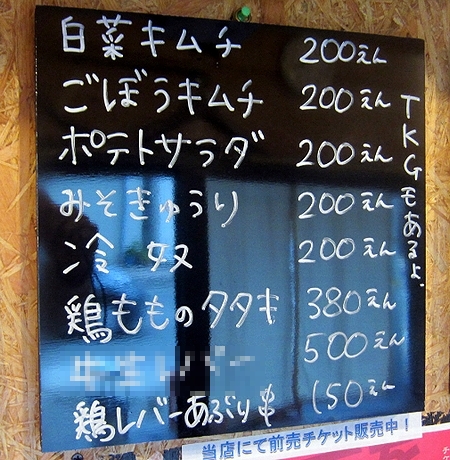 白菜キムチ 200えん
ごぼうキムチ 200えん
ポテトサラダ 200えん
みそきゅうり 200えん
冷奴 200えん
鶏もものタタキ 380えん
500えん
鶏レバーあぶり串 150えん
TKGもあるよ.
当店にて前売チケット販売中!